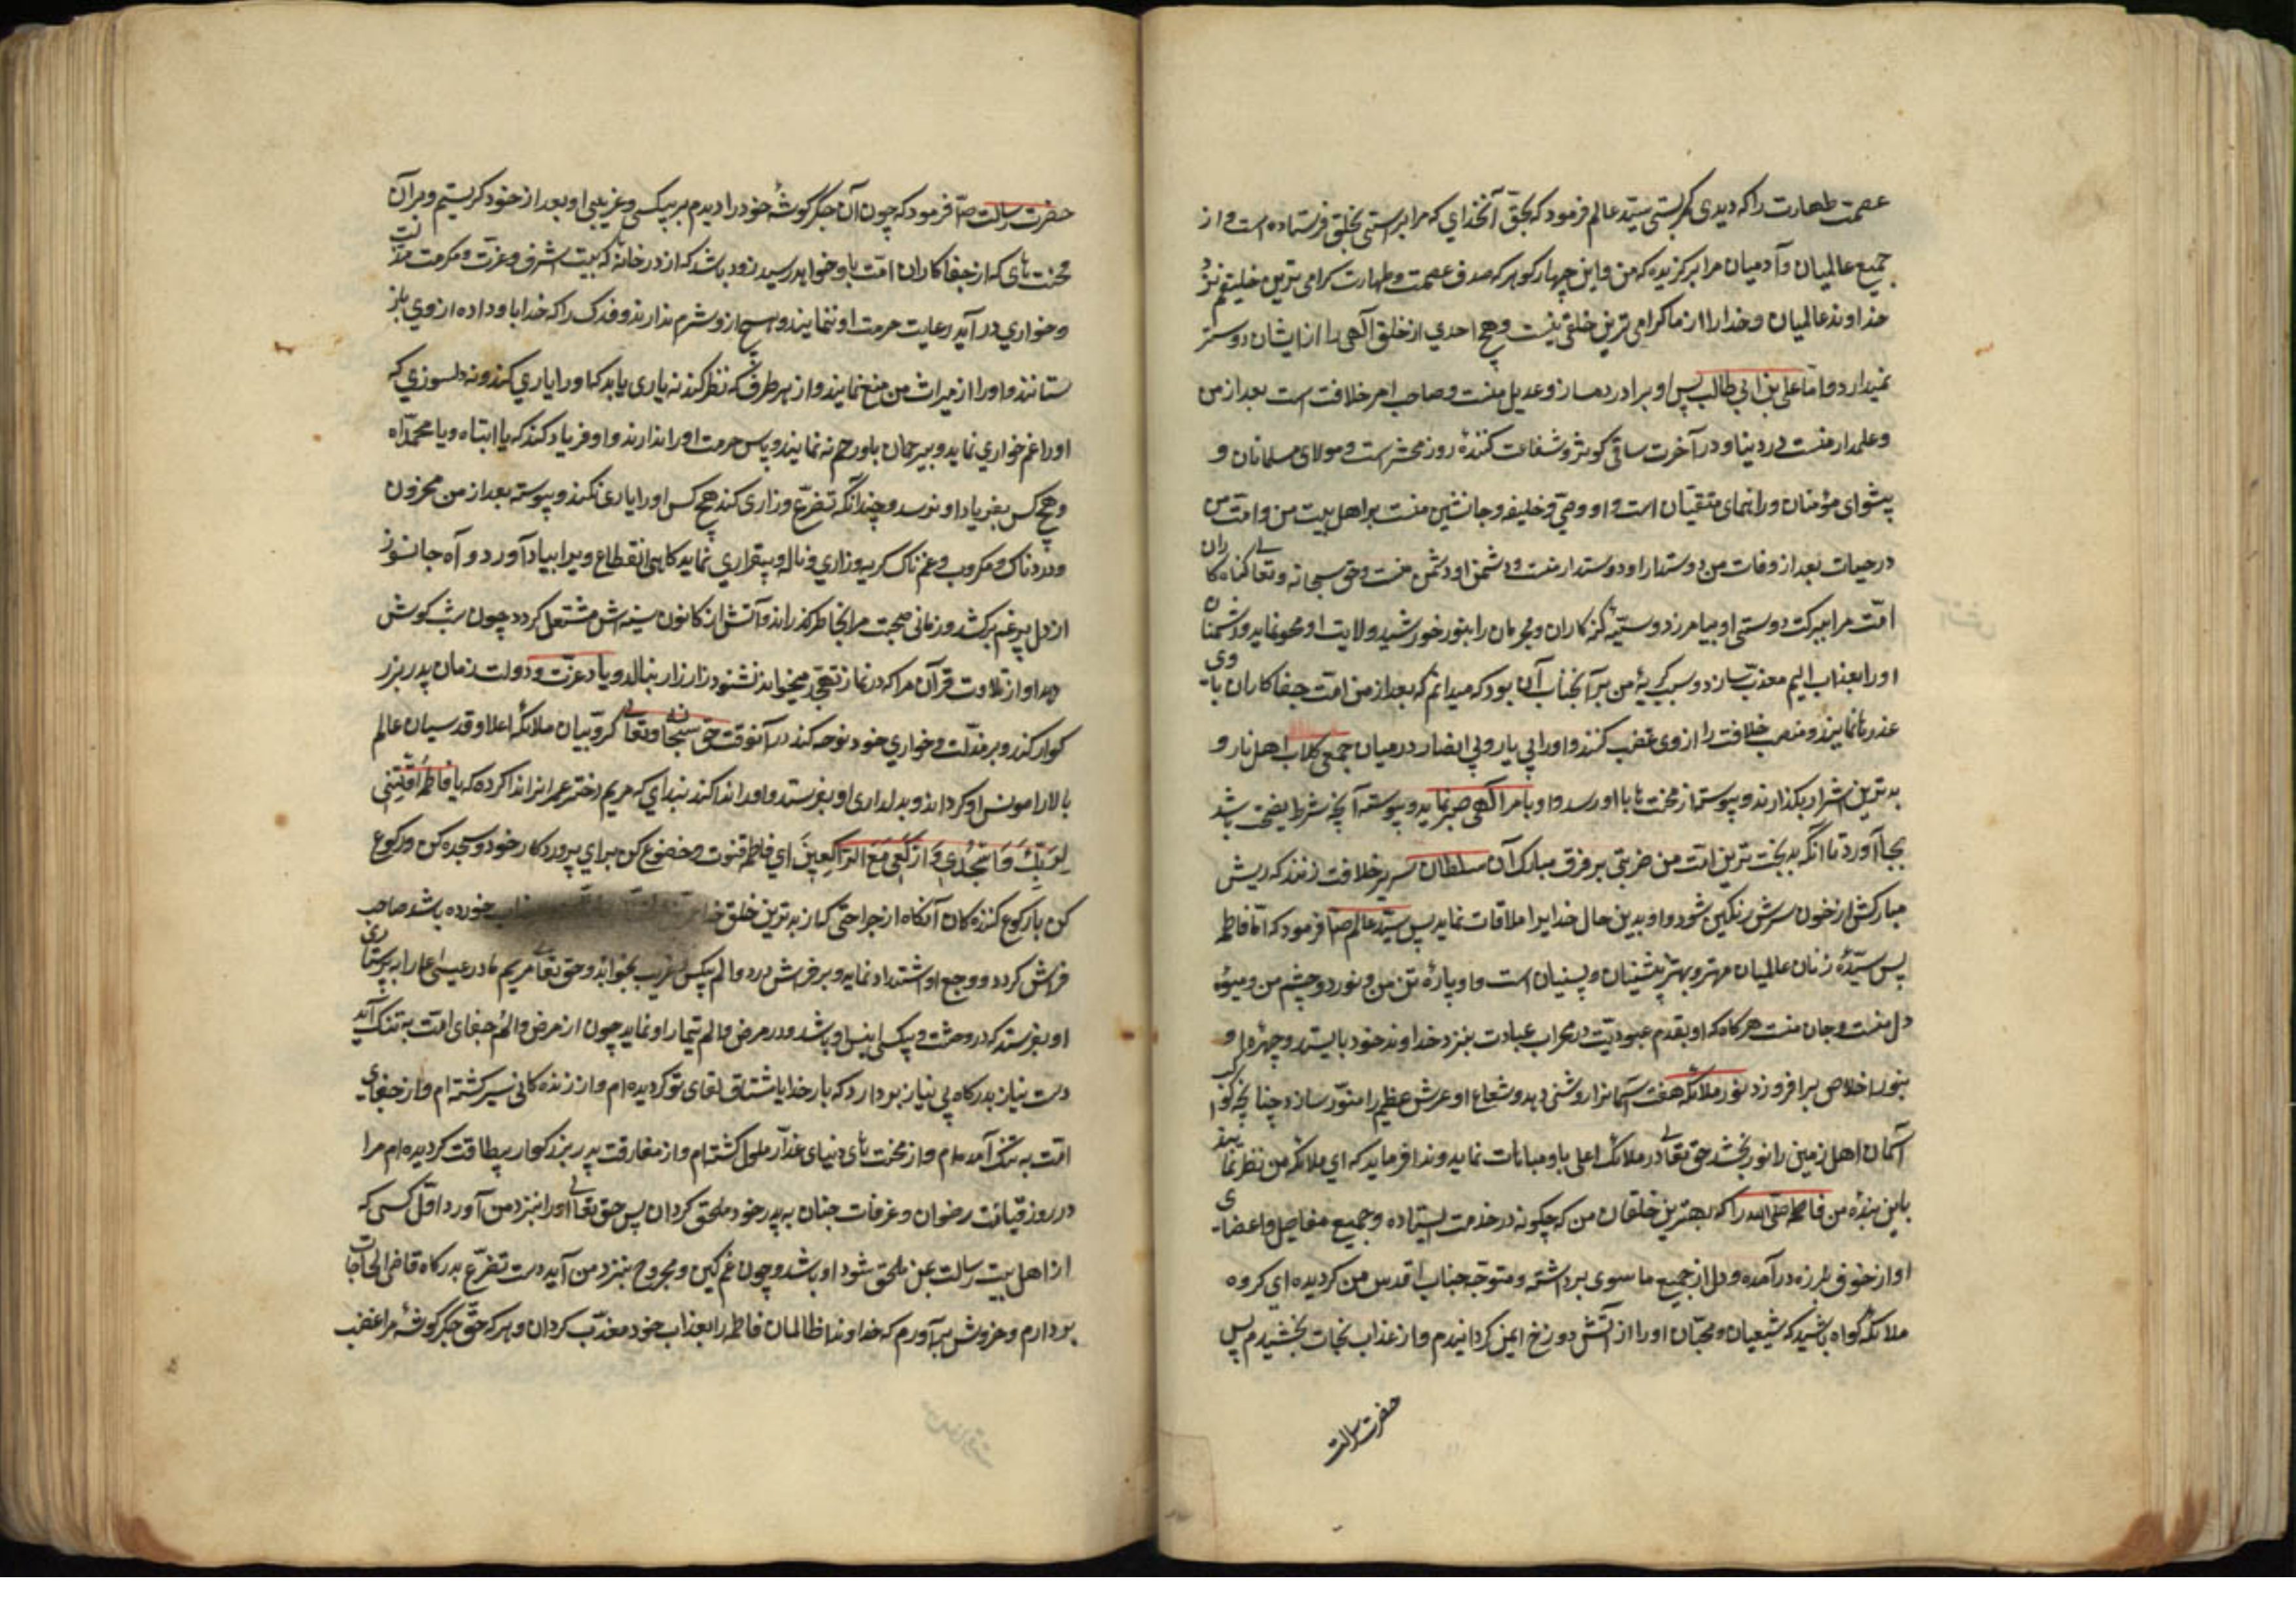 عصمت طهارت را که دیدی گریستی سیّد عالم فرمود که بحق آنخدای که مرا براستی بخلق فرستاده است و از
جمیع عالمیان و آدمیان مرا برکزیده که من و این چهار کوهر که صدف عصمت و طهارت کرامی ترین خلیقیم نزد
خداوند عالمیان و خدا را از ما کرامی ترین خلقی نیست و هیچ احدی از خلق آلهی را از ایشان دوستر
نمیدارد و امّا علی بن ابی طالب پس او برادر دمساز و عدیل منست و صاحب امر خلافت است بعد از من
و علمدار منست در دنیا و در آخرت ساقی کوثر و شفاعت کنندهٔ روز محشر است و مولای مسلمانان و
پیشوای مؤمنان و رانهمای متقیّان است و او وصّی و خلیفه و جانشین منست بر اهل بیت من و امّت من
در حیات بعد از وفات من دوستدار او دوستدار منست و دشمن او دشمن منست و حق سبحانه و تعالی کناه کاران
امّت مرا ببرکت دوستی او بیامرزد و سیّئه کنه کاران و مجرمان را بنور خورشید ولایت او محو نماید و دشمنان
او را بعذاب الیم معذّب سازد و سبب کریهٔ من بر آنجناب آن بود که میدانم که بعد از من امّت جفاکاران باوی
عذرها نمایند و منصب خلافت را از وی غصب کنند و او را بی یار و بی انصار در میان جمعی کلاب اهل نار و
بدترین اشرار بکذارند و پیوسته از محنت ها باو رسد و او بامر آلهی صبر نماید و پیوسته آنچه شرط نصیحت باشد
بجا آورد تا آنکه بدبخت ترین امّت من ضربتی بر فرق مبارک آن سلطان سریر خلافت زنند که ریش
مبارکش از خون سرش رنکین شود و او بدین حال خدایرا ملاقات نماید پس سیّد عالم صلّ فرمود که امّا فاطمه
پس سیّدهٔ زنان عالمیان مهتر و بهتر پیشینیان و پسینیان است و او پارهٔ تن من و نور دو چشم من و میوهٔ
دل منست و جان منست هرکاه که او بقدم عبودیّت در محراب عبادت بنزد خداوند خود بایستد و چهرهٔ او
بنور اخلاص برافروزد نور ملائکه هفت آسمانرا روشنی دهد و شعاع او عرش عظیم را منوّر سازد چنانچه کوکب
آسمان اهل زمین را نور بخشد حق تعالی در ملائک اعلی باو مباهات نماید و ندا فرماید که ای ملائکه من نظر نمایند
باین بندهٔ من فاطمه را که بهترین خلقان من که چکونه در خدمت ایستاده و جمیع مفاصل و اعضای
او از خوف بلرزه در آمده و دل از جمیع ما سوی برداشته و متوجّه جناب اقدس من کردیده ای کروه
ملائکه کواه باشید که شیعیان و محبّان او را از آتش دوزخ ایمن کردانیدم و از عذاب نجات بخشیدم پس
حضرت رسالت
حضرت رسالت صلّ فرمود که چون آن جکر کوشهٔ خود را دیدم بر بیکسی و غریبی او بعد از خود کریستم و بر آن
محنت های که از جفاکاران امّت باو خواهد رسید زود باشد که از در خانه که بیت الشرف و عزّت و مکرمت مذلّت
و خواری در آید رعایت حرمت او ننمایند و هیچ از و شرم ندارند و فدک را که خدا باو داده از وی باز
ستانند و او را از میراث من منع نمایند و از هر طرف که نظر کند نه یاری یابد که او را یاری کند و نه دلسوزی که
او را غم خواری نماید و بیرحمان باو رحم نه نمایند و پاس حرمت او را ندارند و او فریاد کند که یا ابتاه و یا محمّداه
و هیچ کس بفریاد او نرسد و چندانکه تضرّع و زاری کند هیچ کس او را یاری نکند و پیوسته بعد از من محزون
و دردناک و مکروب و غم ناک کریه و زاری و ناله و بیقراری نماید کاهی انقطاع ویرا بیاد آورد و آه جانسوز
از دل پر غم برکشد و زمانی صحبت مرا بخاطر کذراند و آتش از کانون سینه اش مشتعل کردد چون شب کوش
دهد آواز تلاوت قرآن مرا که در نماز تهجّد میخواندم نشنود زار زار بنالد و یاد عزّت و دولت زمان پدر بزر
کوار کند و بر مذلّت و خواری خود نوحه کند در آنوقت حق سبحانه و تعالی کروّبیان ملائکهٔ اعلا و قدسیان عالم
بالا را مونس او کرداند و بدلداری او بفرستد و او را ندا کنند بندای که مریم دختر عمران را ندا کرده که یا فاطمة اقْنُتِی
لِرَبِّکِ وَاسْجُدِی وَارْکَعِی مَعَ الرَّاکِعِینَ ای فاطمه قنوت و خضوع کن برای پروردکار خود و سجده کن و رکوع
کن با رکوع کننده کان آنکاه از جراحتی که از بدترین خلق خدا خورده باشد صاحب
فراش کردد و وجع او اشتداد نماید و بر فراش درد و الم بیکس غریب بخوابد و حق تعالی مریم مادر عیسی را به پرستاری
او بفرستد که در وحشت و بیکسی انیس او باشد و در مرض و الم تیمار او نماید چون از مرض و الم جفای امّت به تنک آید
دست نیاز بدرکاه بی نیاز بردارد که بار خدایا مشتاق لقای تو کردیده ام و از زنده کانی سیر کشته ام و از جفای
امّت به تنک آمده ام و از محنت های دنیای غدّار ملول کشته ام و از مفارقت پدر بزرکوار بیطاقت کردیده ام مرا
در روز قیامت رضوان و غرفات جنان به پدر خود ملحق کردان پس حق تعالی او را بنزد من آورد اوّل کسی که
از اهل بیت رسالت بمن ملحق شود او باشد و چون غم کین و مجروح بنزد من آید دست تضرّع بدرکاه قاضی الحاجات
بردارم و خروش برآورم که خداوندا ظالمان فاطمه را بعذاب خود معذّب کردان و هر که حقّ جکر کوشهٔ مرا غضب